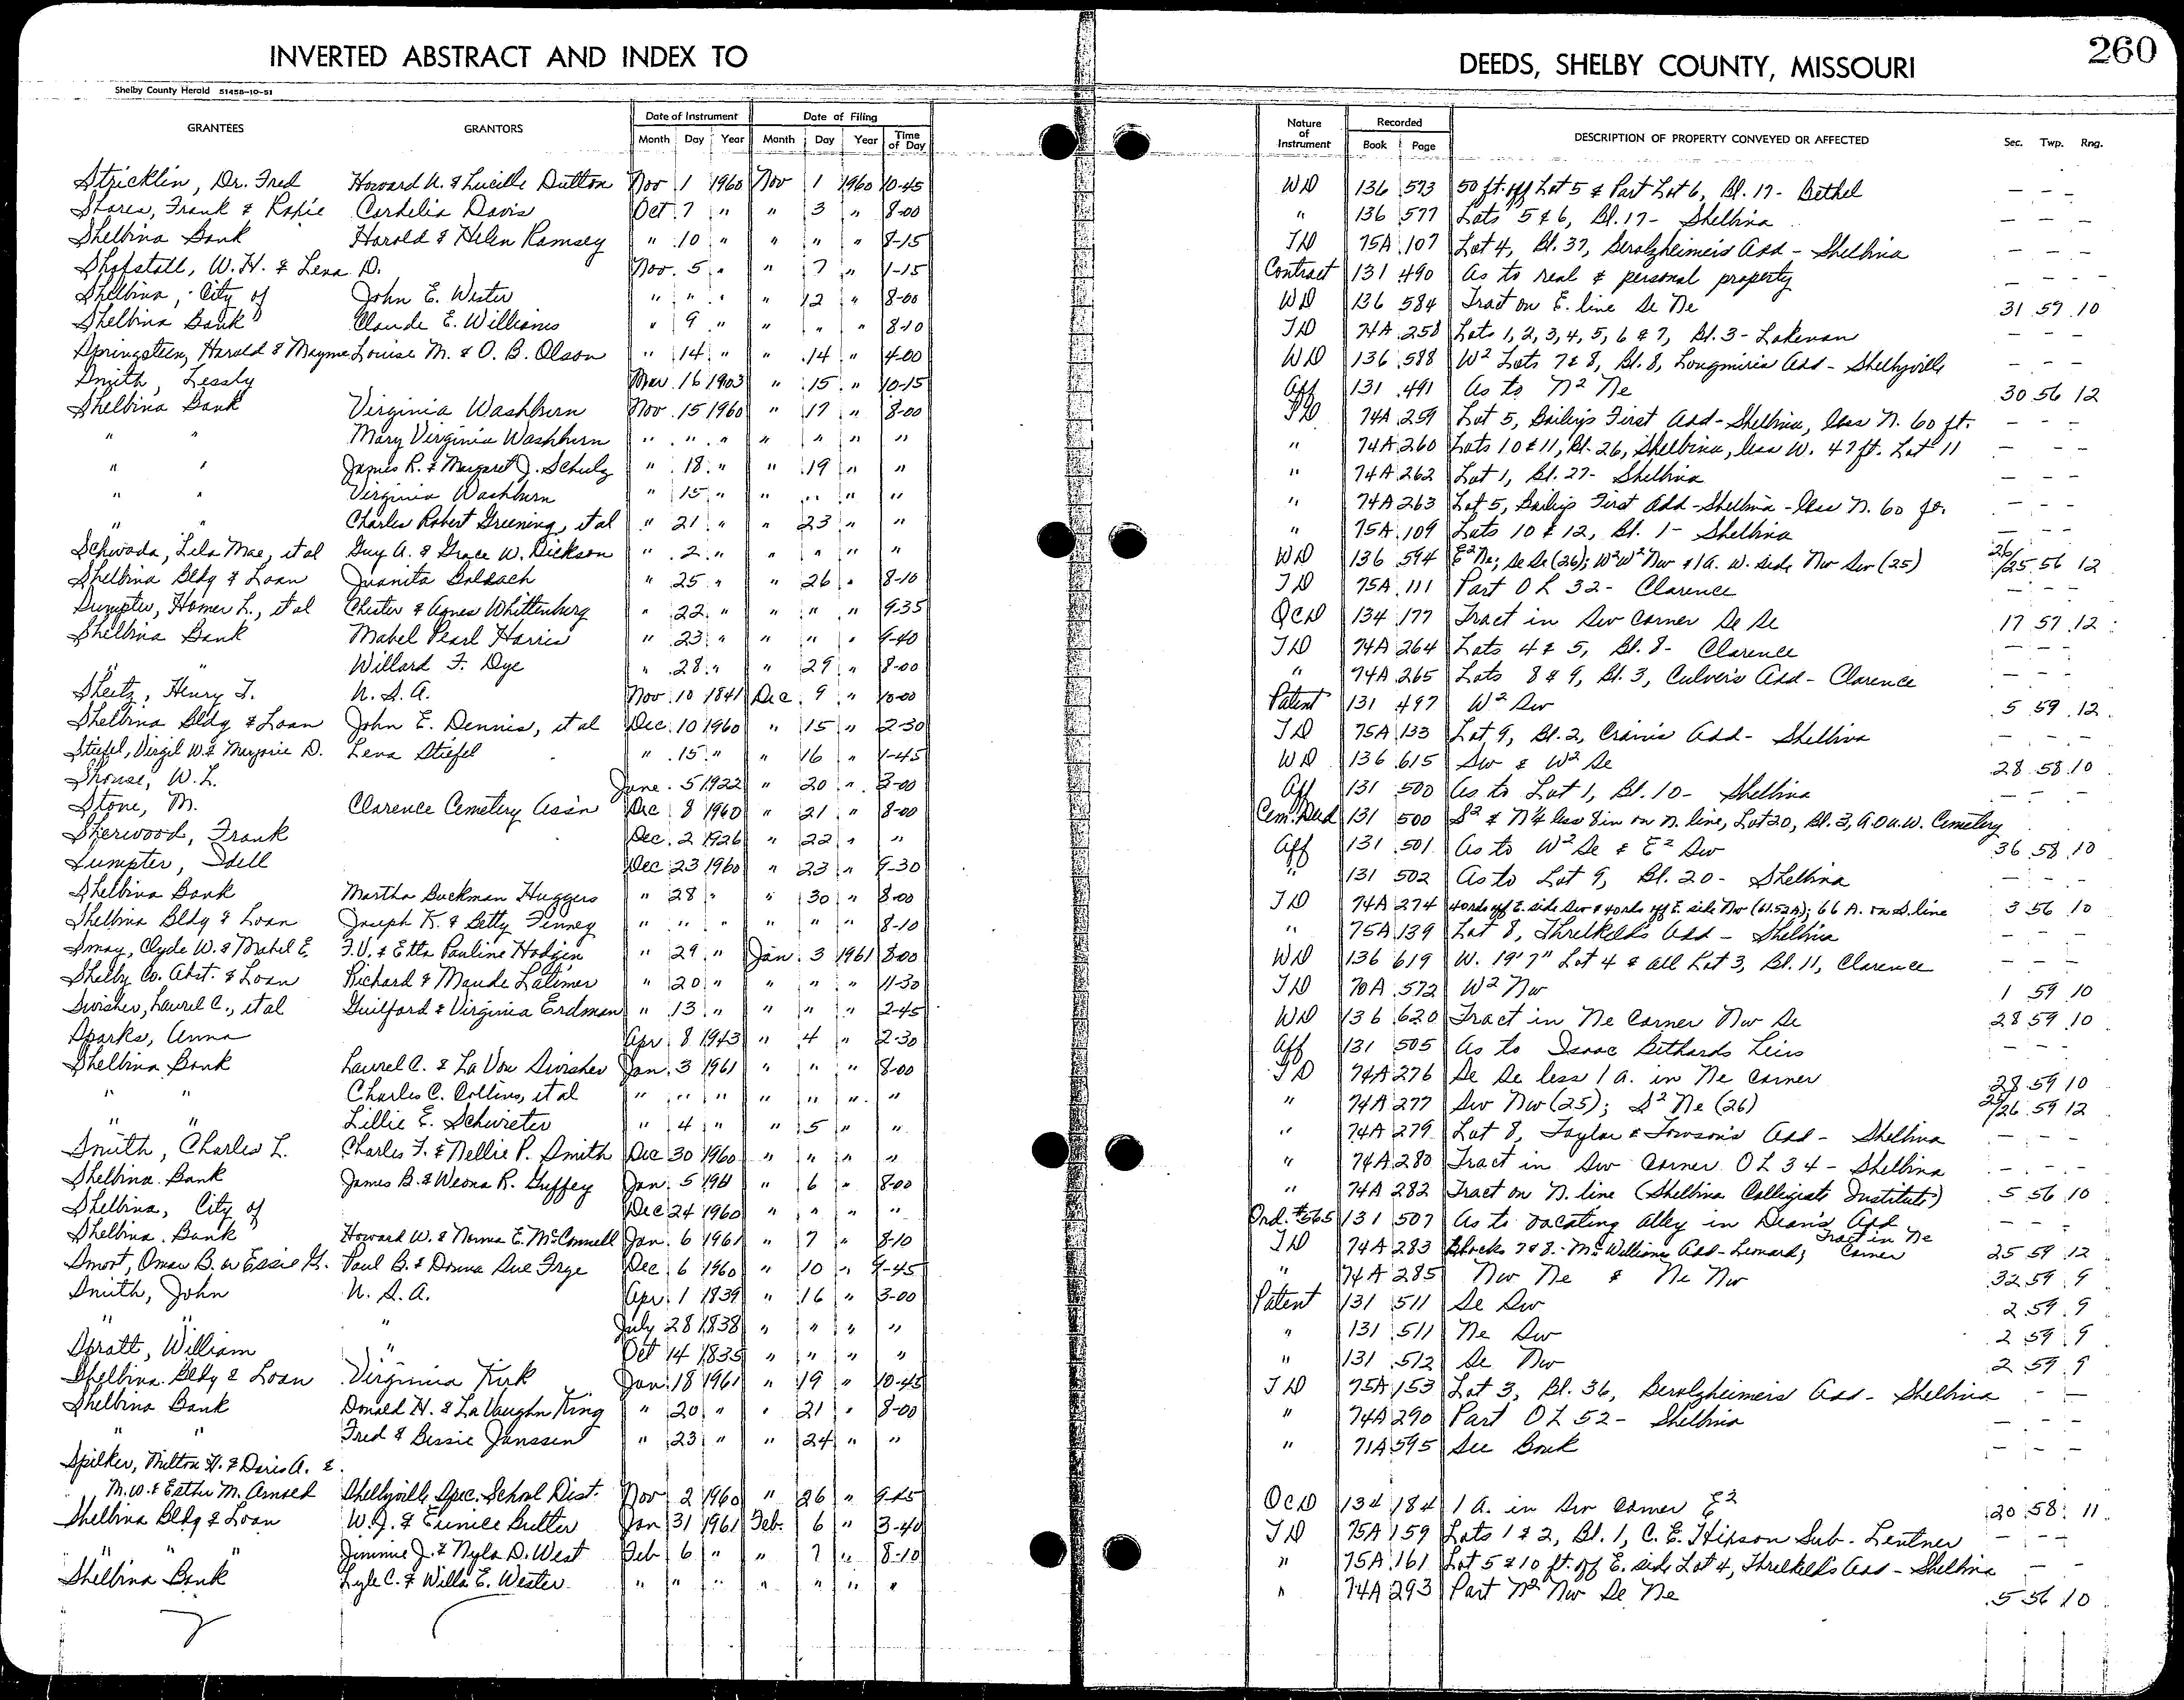 INVERTED ABSTRACT AND INDEX TO
DEEDS, SHELBY COUNTY, MISSOURI
260
Shelby County Herald 51458-10-51
GRANTEES GRANTORS Date of Instrument Date of Filing Nature of Instrument Recorded DESCRIPTION OF PROPERTY CONVEYED OR AFFECTED Sec. Twp. Rng.
Month Day Year Month Day Year Time of Day Book Page
Stricklin, Dr. Fred Howard A. & Lucille Dutton Nov 1 1960 Nov 1 1960 10-45 WD 136 573 50 ft. off Lot 5 & Part Lot 6, Bl. 17- Bethel - - -
Shares, Frank & Cordelia Davis Oct. 7 " " 3 " 8-00 " 136 577 Lots 5 & 6, Bl. 17- Shelbina - - -
Shelbina Bank Harold & Helen Ramsey " 10 " " " " 8-15 TD 75A 107 Lot 4, Bl. 37, Berolzheimer's Add - Shelbina - - -
Shofstall, W. H. & Lena D. Nov. 5 " " 7 " 1-15 Contract 131 490 As to real & personal property - - -
Shelbina, City of John E. Wester " " " " 12 " 8-00 WD 136 584 Tract on E. line Se Ne 31 57 10
Shelbina Bank Claude E. Williams " 9 " " " " 8-10 TD 74A 258 Lots 1, 2, 3, 4, 5, 6 & 7, Bl. 3- Lakenan - - -
Springsteen, Harold & Mayme Louise M. & O. B. Olson " 14 " " 14 " 4-00 WD 136 588 W2 Lots 7 & 8, Bl. 8, Longmire's Add - Shelbyville - - -
Smith, Lessly Mar. 16 1903 " 15 " 10-15 Aff 131 491 As to N2 Ne 30 56 12
Shelbina Bank Virginia Washburn Nov. 15 1960 " 17 " 8-00 TD 74A 259 Lot 5, Bailey's First Add - Shelbina, less N. 60 ft. - - -
" " Mary Virginia Washburn " " " " " " " " 74A 260 Lots 10 & 11, Bl. 26, Shelbina, less W. 47 ft. Lot 11 - - -
" " James R. & Margaret J. Schulz " 18 " " 19 " " " 74A 262 Lot 1, Bl. 27- Shelbina - - -
" " Virginia Washburn " 15 " " " " " " 74A 263 Lot 5, Bailey's First Add - Shelbina - less N. 60 ft. - - -
" " Charles Robert Greening, et al " 21 " " 23 " " " 75A 109 Lots 10 & 12, Bl. 1- Shelbina - - -
Schwada, Lela Mae, et al Guy A. & Grace W. Dickson " 2 " " " " " WD 136 594 E2 Ne; Se Se (26); W2 W2 Nw & 1 A. W. side Nw Sw (25) 26/25 56 12
Shelbina Bldg & Loan Juanita Bolbach " 25 " " 26 " 8-10 TD 75A 111 Part OL 32- Clarence - - -
Sumpter, Homer L., et al Chester & Agnes Whittenburg " 22 " " " " 9-35 QCD 134 177 Tract in Sw Corner Se Se 17 57 12
Shelbina Bank Mabel Pearl Harris " 23 " " " " 9-40 TD 74A 264 Lots 4 & 5, Bl. 8- Clarence - - -
" " Willard F. Dye " 28 " " 29 " 8-00 " 74A 265 Lots 8 & 9, Bl. 3, Culver's Add - Clarence - - -
Sheetz, Henry T. U. S. A. Nov. 10 1841 Dec. 9 " 10-00 Patent 131 497 W2 Sw 5 59 12
Shelbina Bldg & Loan John E. Dennis, et al Dec. 10 1960 " 15 " 2-30 TD 75A 133 Lot 9, Bl. 2, Crain's Add - Shelbina - - -
Stiefel, Virgil W. & Marjorie D. Lena Stiefel " 15 " " 16 " 1-45 WD 136 615 Sw & W2 Se 28 58 10
Shouse, W. L. June 5 1922 " 20 " 3-00 Aff 131 500 As to Lot 1, Bl. 10- Shelbina - - -
Stone, M. Clarence Cemetery Ass'n Dec 8 1960 " 21 " 8-00 Cem. Deed 131 500 S2 & N4 less 8 in on N. line, Lot 20, Bl. 3, A.O.U.W. Cemetery
Sherwood, Frank Dec. 2 1926 " 22 " " Aff 131 501 As to W2 Se & E2 Sw 36 58 10
Sumpter, Idell Dec 23 1960 " 23 " 9-30 " 131 502 As to Lot 9, Bl. 20- Shelbina - - -
Shelbina Bank Martha Buckman Huggers " 28 " " 30 " 8-00 TD 74A 274 40 rds off E. side Sw & 40 rds off E. side Nw (61.52A); 66 A. on S. line 3 56 10
Shelbina Bldg & Loan Joseph K. & Betty Finney " " " " " " 8-10 " 75A 139 Lot 8, Threlkeld's Add - Shelbina - - -
Smay, Clyde W. & Mabel E. F. V. & Etta Pauline Hodgin " 29 " Jan. 3 1961 8-00 WD 136 619 W. 19'7" Lot 4 & all Lot 3, Bl. 11, Clarence - - -
Shelby Co. Abst. & Loan Richard & Maude Latimer " 20 " " " " 11-30 TD 70A 572 W2 Nw 1 59 10
Swisher, Laurel C., et al Guilford & Virginia Erdman " 13 " " " " 2-45 WD 136 620 Tract in Ne Corner Nw Se 28 59 10
Sparks, Anna Apr. 8 1943 " 4 " 2-30 Aff 131 505 As to Isaac Bethards Heirs - - -
Shelbina Bank Laurel C. & La Von Swisher Jan. 3 1961 " " " 8-00 TD 74A 276 Se Se less 1 A. in Ne Corner 28 59 10
" " Charles C. Collins, et al " " " " " " " " 74A 277 Sw Nw (25); S2 Ne (26) 25/26 59 12
" " Lillie E. Schwieter " 4 " " 5 " " " 74A 279 Lot 8, Taylor & Towson's Add - Shelbina - - -
Smith, Charles L. Charles F. & Nellie P. Smith Dec 30 1960 " " " " " 74A 280 Tract in Sw Corner OL 34 - Shelbina - - -
Shelbina Bank James B. & Weona R. Guffey Jan. 5 1961 " 6 " 8-00 " 74A 282 Tract on N. line (Shelbina Collegiate Institute) 5 56 10
Shelbina, City of Dec 24 1960 " " " " Ord. #565 131 507 As to vacating alley in Dean's Add - - -
Shelbina Bank Howard W. & Norma E. McConnell Jan. 6 1961 " 7 " 8-10 TD 74A 283 Blocks 7 & 8 - McWilliams Add - Leonard; Tract in Ne Corner 25 59 12
Smoot, Omar B. or Essie G. Paul B. & Donna Sue Frye Dec. 6 1960 " 10 " 9-45 " 74A 285 Nw Ne & Ne Nw 32 59 9
Smith, John U. S. A. Apr. 1 1839 " 16 " 3-00 Patent 131 511 Se Sw 2 59 9
" " " July 28 1838 " " " " " 131 511 Ne Sw 2 59 9
Spratt, William " Oct 14 1835 " " " " " 131 512 Se Nw 2 59 9
Shelbina Bldg & Loan Virginia Kirk Jan. 18 1961 " 19 " 10-45 TD 75A 153 Lot 3, Bl. 36, Berolzheimer's Add - Shelbina - -
Shelbina Bank Donald H. & La Vaughn King " 20 " " 21 " 8-00 " 74A 290 Part OL 52- Shelbina - - -
" " Fred & Bessie Janssen " 23 " " 24 " " " 71A 595 See Book - - -
Spilker, Milton H. & Doris A. &
M. W. & Esther M. Arnold Shelbyville Spec. School Dist. Nov 2 1960 " 26 " 9-45 QCD 134 184 1 A. in Sw Corner E2 20 58 11
Shelbina Bldg & Loan W. J. & Eunice Butler Jan 31 1961 Feb. 6 " 3-40 TD 75A 159 Lots 1 & 2, Bl. 1, C. E. Hipson Sub. - Lentner - - -
" " " Jimmie J. & Nyla D. West Feb 6 " " 7 " 8-10 " 75A 161 Lot 5 & 10 ft. off E. side Lot 4, Threlkeld's Add - Shelbina - -
Shelbina Bank Lyle C. & Willa E. Wester " " " " " " " " 74A 293 Part N2 Nw Se Ne 5 56 10